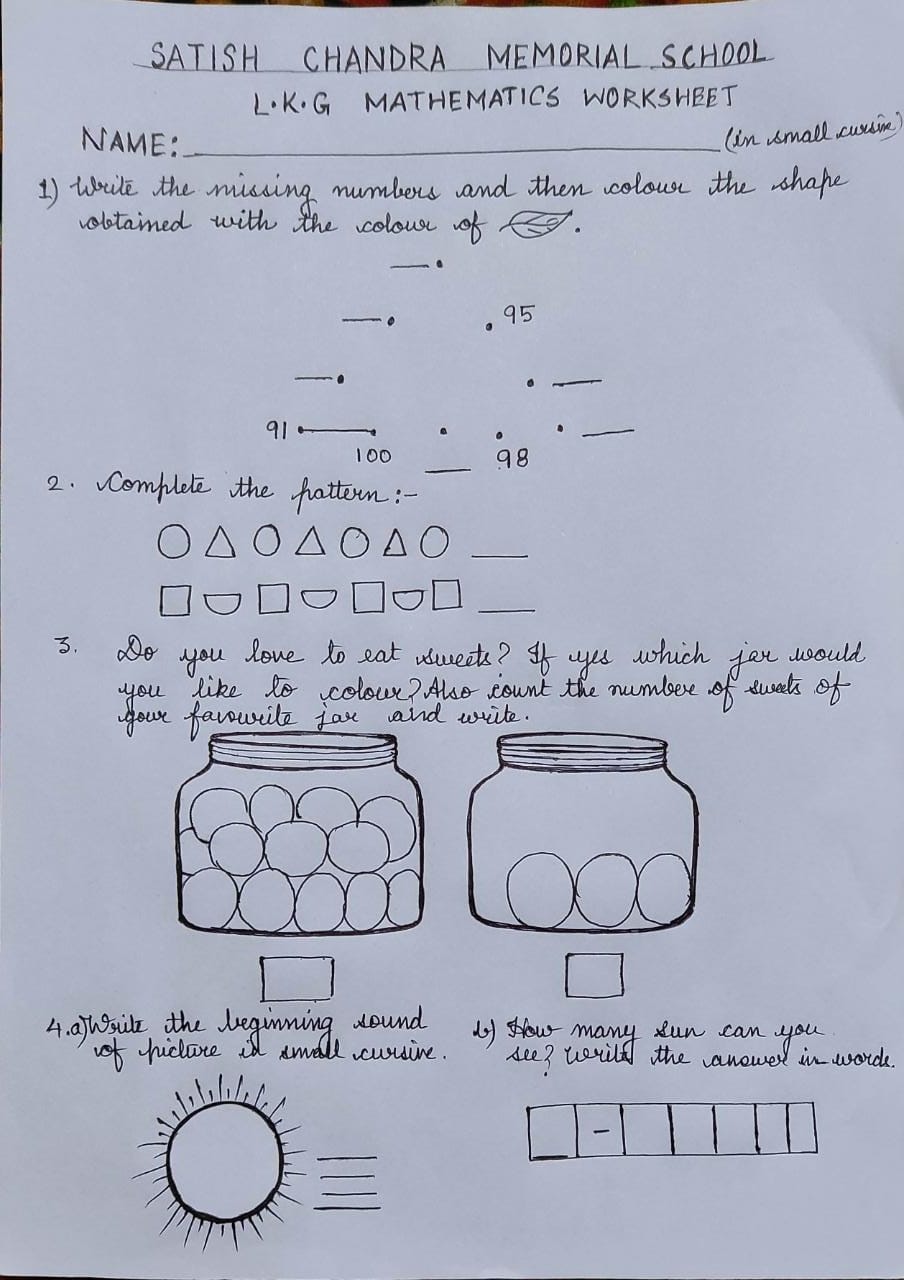 SATISH CHANDRA MEMORIAL SCHOOL
L.K.G MATHEMATICS WORKSHEET
NAME: (in small cursive)
1) Write the missing numbers and then colour the shape
obtained with the colour of .
95
91
100 98
2. Complete the pattern :-
3. Do you love to eat sweets? If yes which jar would
you like to colour? Also count the number of sweets of
your favourite jar and write.
4.a) Write the beginning sound
of picture in small cursive.
b) How many sun can you
see? Write the answer in words.
-